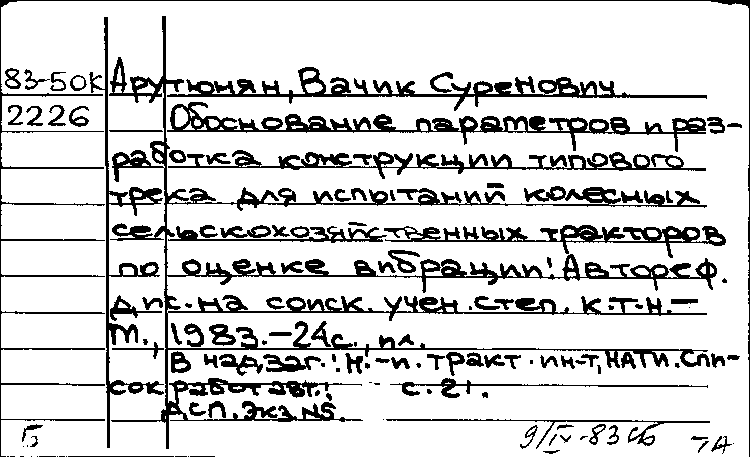 83-50к Арутюнян, Вачик Суренович.
2226 Обоснование параметров и раз-
работка конструкции типового
трека для испытаний колесных
сельскохозяйственных тракторов
по оценке вибрации: Автореф.
дис. на соиск. учен. степ. к.т.н.–
М., 1983.–24с., ил.
В надзаг.: Н.-и. тракт. ин-т, НАТИ. Спи-
сок работ авт.: с. 21.
ДСП. Экз. №5.
Б 9/IV-83